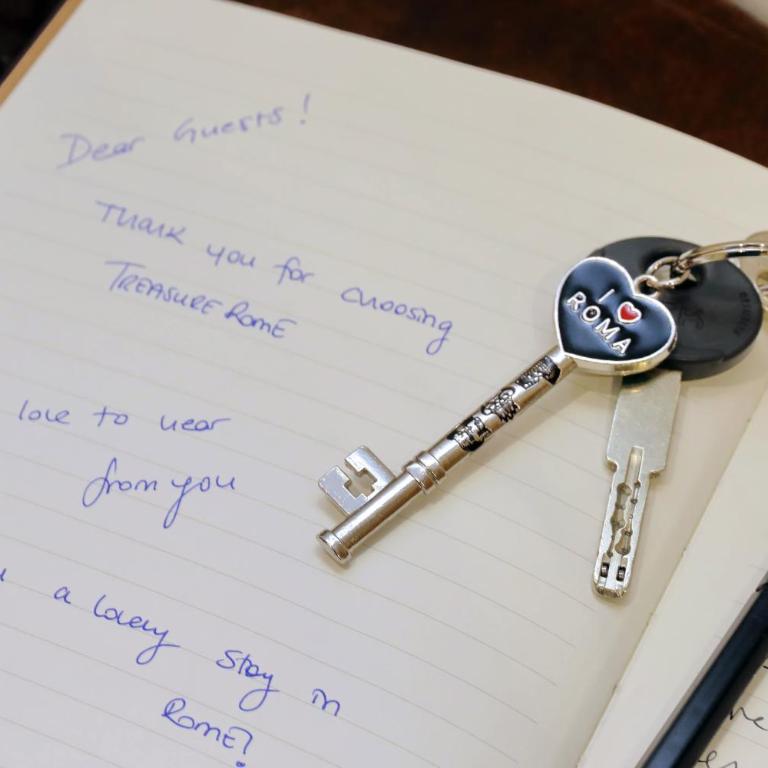 Dear Guests!
Thank you for choosing
TREASURE ROME
love to hear
from you
a lovely stay in
Rome?
I ❤
ROMA